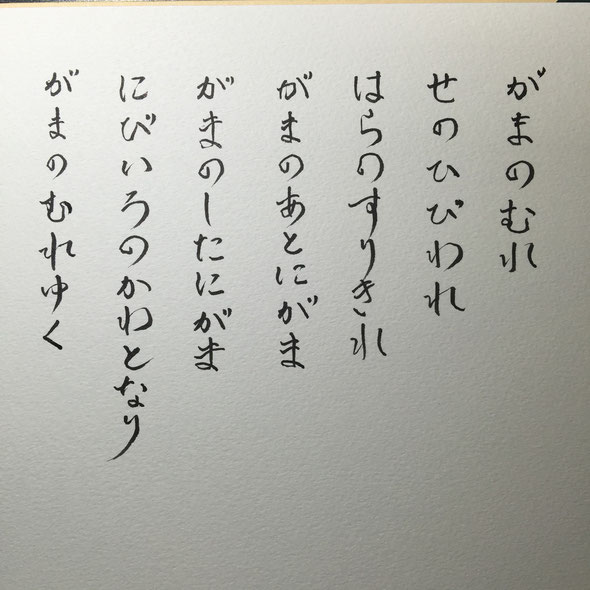 がまのむれ
せのひびわれ
はらのすりきれ
がまのあとにがま
がまのしたにがま
にびいろのかわとなり
がまのむれゆく